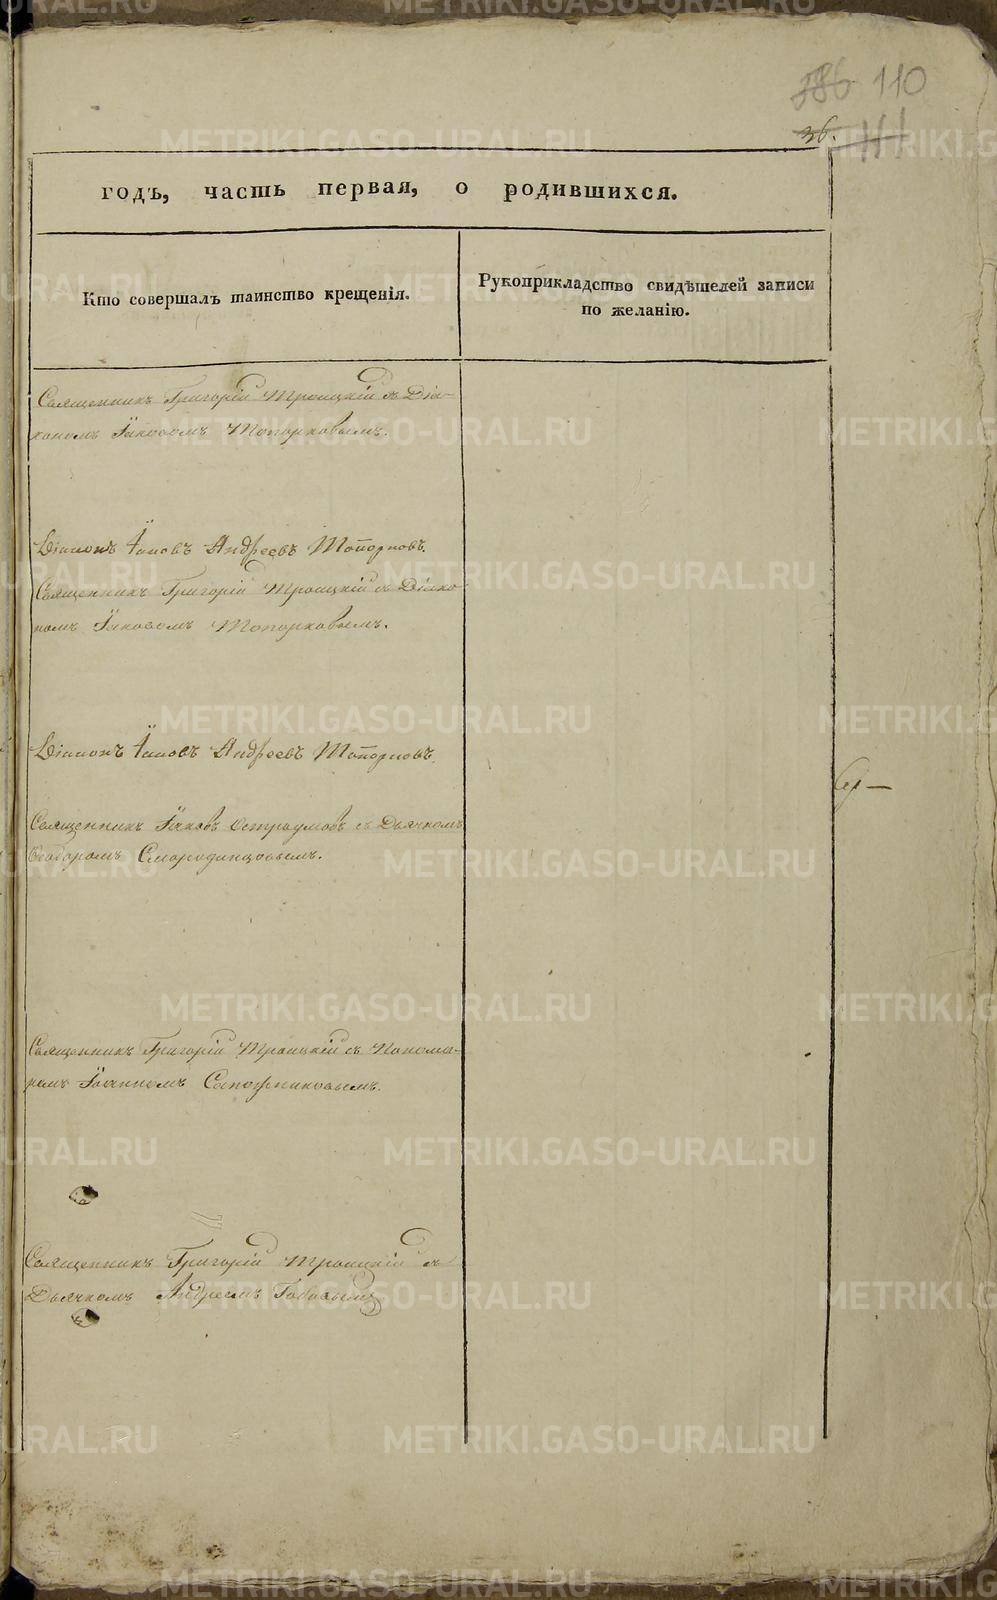 386 110
36. 111
годъ, часть первая, о родившихся.
Кто совершалъ таинство крещенія.
Рукоприкладство свидѣтелей записи
по желанію.
Священникъ Григорій Троицкій съ Діа-
кономъ Іаковомъ Топорковымъ.
Діаконъ Іаковъ Андреевъ Топорковъ.
Священникъ Григорій Троицкій съ Діако
номъ Іаковомъ Топорковымъ.
Діаконъ Іаковъ Андреевъ Топорковъ.
Священникъ Іаковъ Остроумовъ съ Дьячкомъ
Ѳеодоромъ Смородинцовымъ.
Священникъ Григорій Троицкій съ Понома-
ремъ Іоанномъ Сапожниковымъ.
Священникъ Григорій Троицкій съ
Дьячкомъ Андреемъ
METRIKI.GASO-URAL.RU